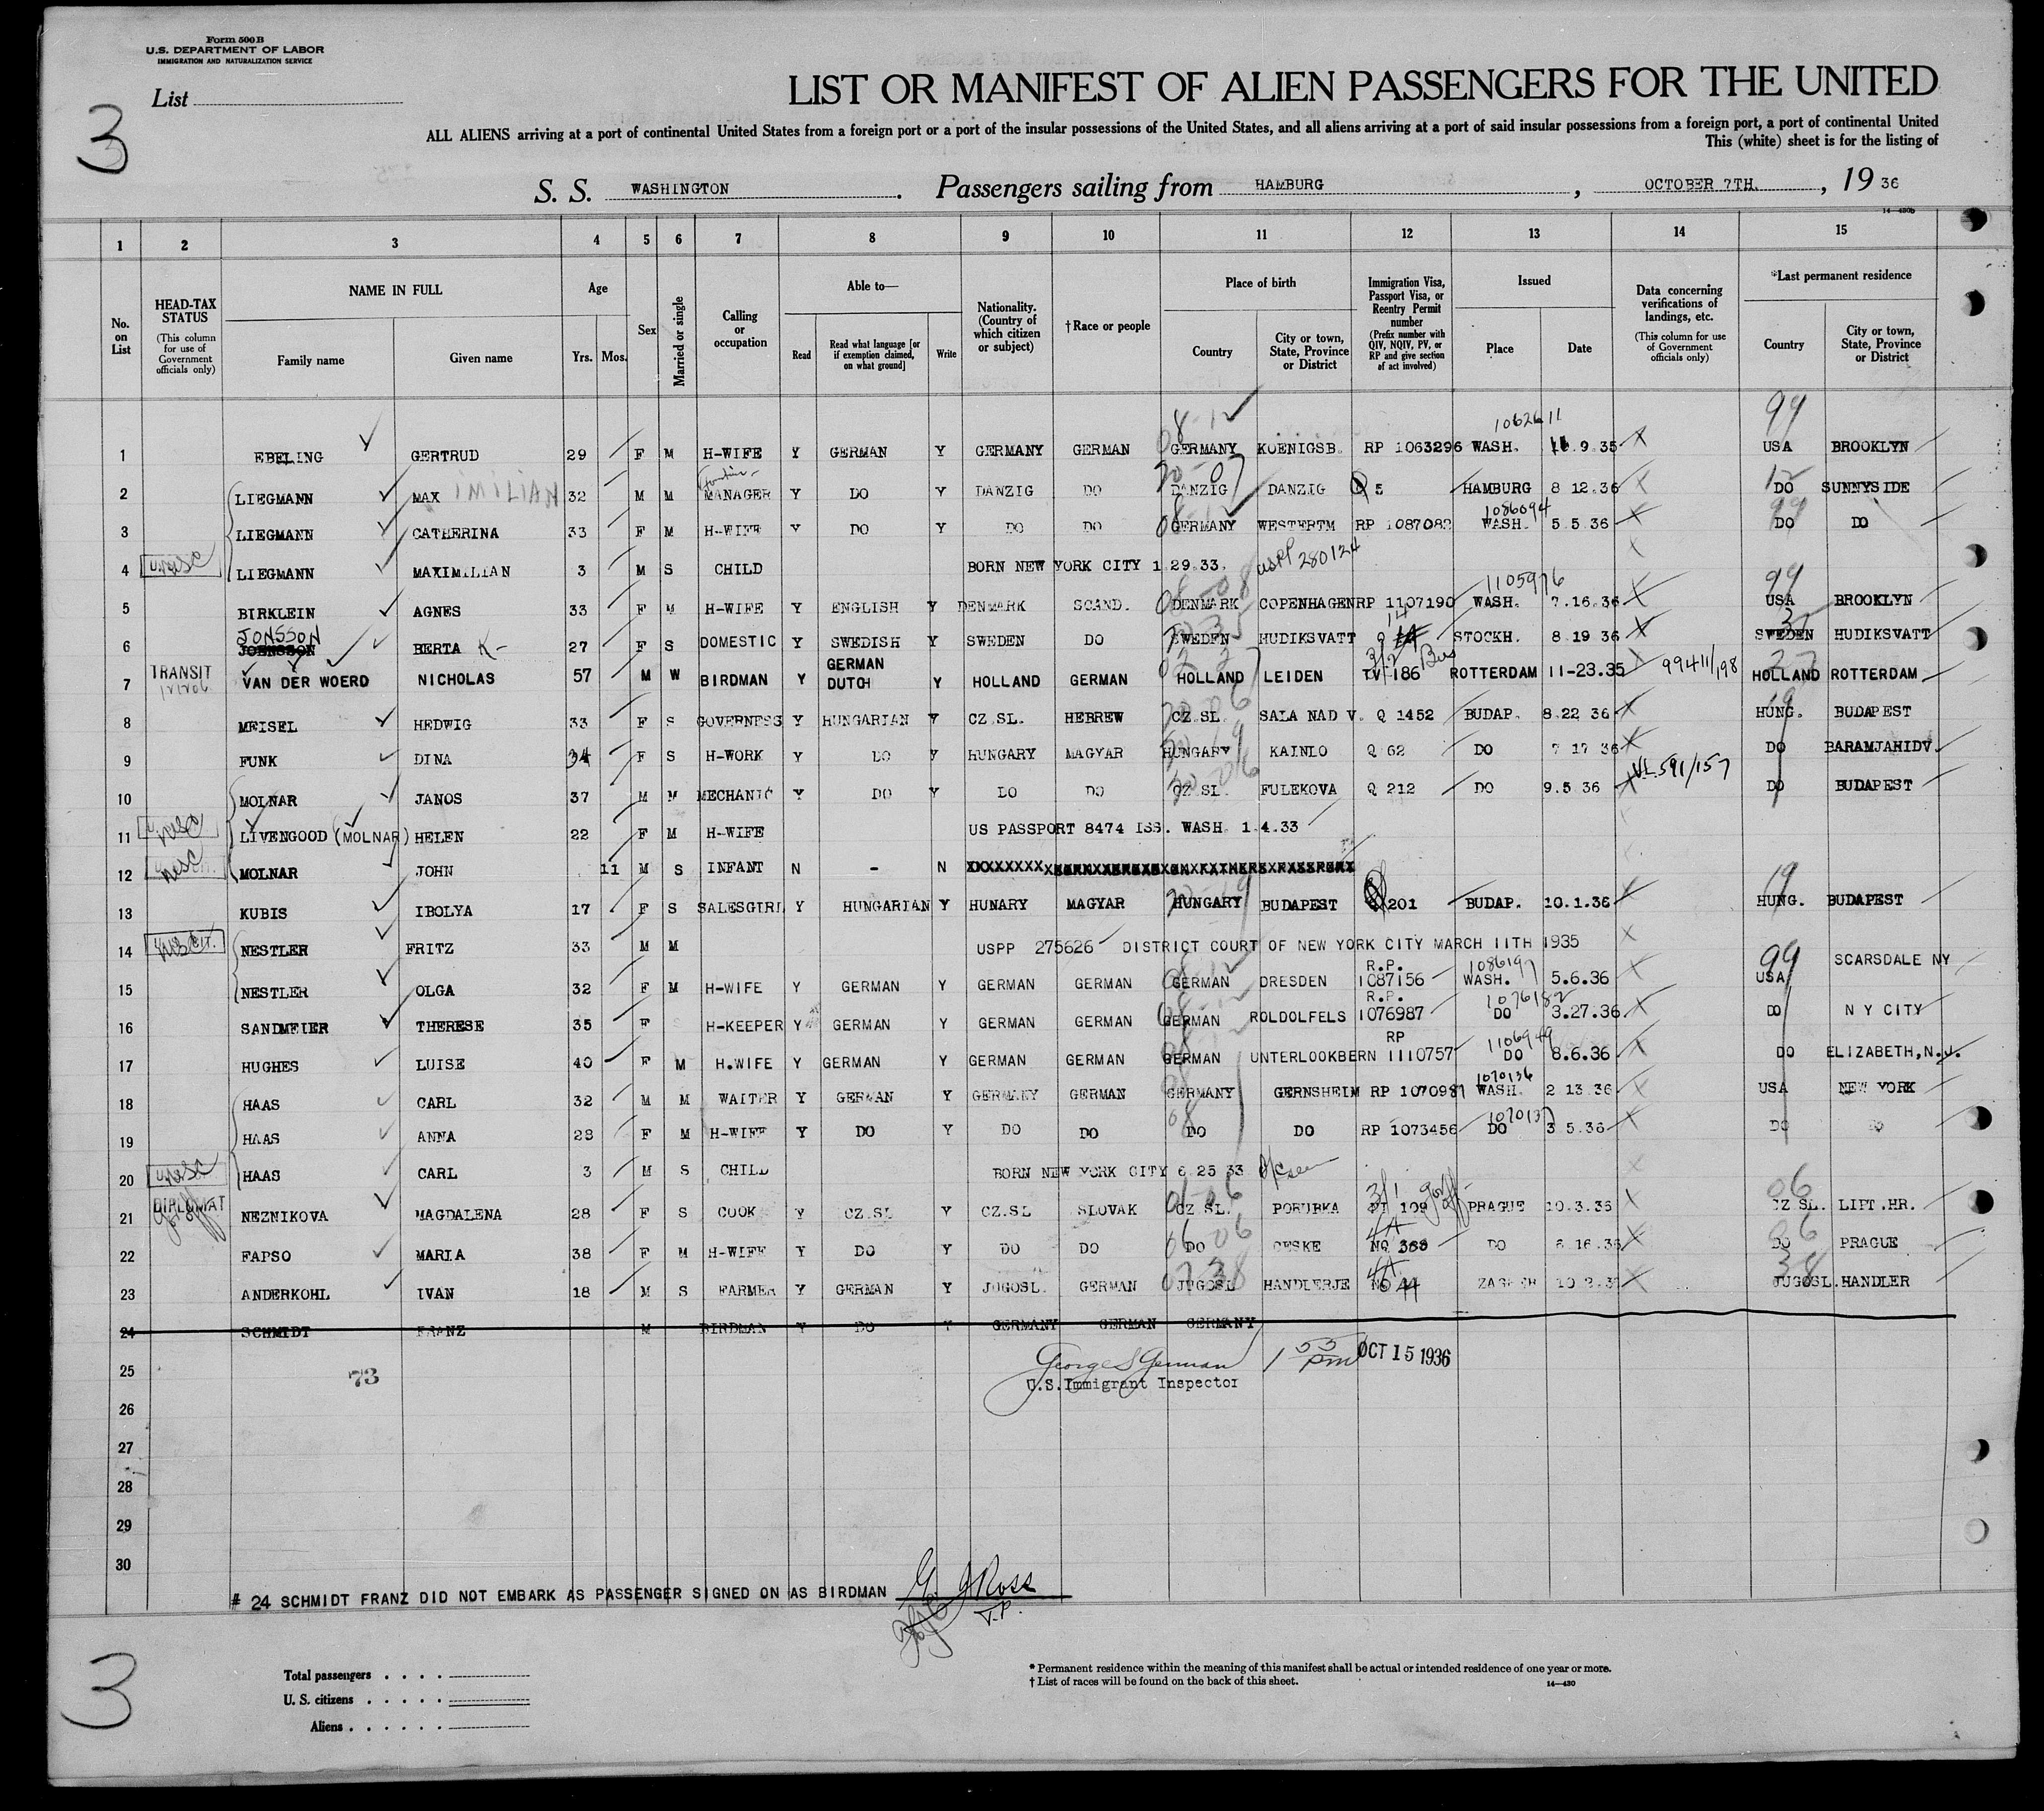 Form 500 B
U.S. DEPARTMENT OF LABOR
IMMIGRATION AND NATURALIZATION SERVICE
List
3
LIST OR MANIFEST OF ALIEN PASSENGERS FOR THE UNITED
ALL ALIENS arriving at a port of continental United States from a foreign port or a port of the insular possessions of the United States, and all aliens arriving at a port of said insular possessions from a foreign port, a port of continental United
This (white) sheet is for the listing of
S. S. WASHINGTON. Passengers sailing from HAMBURG, OCTOBER 7TH., 19 36
14—430b
1 2 3 4 5 6 7 8 9 10 11 12 13 14 15
No. on List
HEAD-TAX STATUS
(This column for use of Government officials only)
NAME IN FULL
Family name
Given name
Age
Yrs. Mos.
Sex
Married or single
Calling or occupation
Able to—
Read
Read what language [or if exemption claimed, on what ground]
Write
Nationality. (Country of which citizen or subject)
†Race or people
Place of birth
Country
City or town, State, Province or District
Immigration Visa, Passport Visa, or Reentry Permit number
(Prefix number with QIV, NQIV, PV, or RP and give section of act involved)
Issued
Place
Date
Data concerning verifications of landings, etc.
(This column for use of Government officials only)
*Last permanent residence
Country
City or town, State, Province or District
1062611 99
1 EBELING GERTRUD 29 F M H-WIFE Y GERMAN Y GERMANY GERMAN GERMANY KOENIGSB. RP 1063296 WASH. 9.35 USA BROOKLYN
2 LIEGMANN MAX IMILIAN 32 M M MANAGER Y DO Y DANZIG DO DANZIG DANZIG 5 HAMBURG 8 12.36 DO SUNNYSIDE
1086094
3 LIEGMANN CATHERINA 33 F M H-WIFE Y DO Y DO DO GERMANY WESTERTM RP 1087082 WASH. 5.5 36 DO DO
4 LIEGMANN MAXIMILIAN 3 M S CHILD BORN NEW YORK CITY 1 29.33. USPP 280124
1105976 99
5 BIRKLEIN AGNES 33 F M H-WIFE Y ENGLISH Y DENMARK SCAND. DENMARK COPENHAGEN RP 1107190 WASH. 7.16.36 USA BROOKLYN
JONSSON 14
6 JOHNSSON BERTA K- 27 F S DOMESTIC Y SWEDISH Y SWEDEN DO SWEDEN HUDIKSVATT Q STOCKH. 8.19 36 SWEDEN HUDIKSVATT
TRANSIT GERMAN 3/2
7 VAN DER WOERD NICHOLAS 57 M W BIRDMAN Y DUTCH Y HOLLAND GERMAN HOLLAND LEIDEN TV 186 ROTTERDAM 11-23.35 99411/198 HOLLAND ROTTERDAM
8 MEISEL HEDWIG 33 F S GOVERNESS Y HUNGARIAN Y CZ.SL. HEBREW CZ.SL. SALA NAD V. Q 1452 BUDAP. 8.22 36 HUNG. BUDAPEST
9 FUNK DINA 34 F S H-WORK Y DO Y HUNGARY MAGYAR HUNGARY KAINLO Q 62 DO 7 17 36 DO BARAMJAHIDV.
10 MOLNAR JANOS 37 M M MECHANIC Y DO Y DO DO CZ SL. FULEKOVA Q 212 DO 9.5 36 VL 591/157 DO BUDAPEST
11 LIVENGOOD (MOLNAR) HELEN 22 F M H-WIFE US PASSPORT 8474 ISS. WASH. 1.4.33
12 MOLNAR JOHN 11 M S INFANT N - N
13 KUBIS IBOLYA 17 F S SALESGIRL Y HUNGARIAN Y HUNARY MAGYAR HUNGARY BUDAPEST 201 BUDAP. 10.1.36 HUNG. BUDAPEST
14 NESTLER FRITZ 33 M M USPP 275626 DISTRICT COURT OF NEW YORK CITY MARCH 11TH 1935
R.P. 1086197 99 SCARSDALE NY
15 NESTLER OLGA 32 F M H-WIFE Y GERMAN Y GERMAN GERMAN GERMAN DRESDEN 1087156 WASH. 5.6.36 USA
R.P. 1076182
16 SANDMEIER THERESE 35 F H-KEEPER Y GERMAN Y GERMAN GERMAN GERMAN ROLDOLFELS 1076987 DO 3.27.36 DO N Y CITY
RP 1106949
17 HUGHES LUISE 40 F M H.WIFE Y GERMAN Y GERMAN GERMAN GERMAN UNTERLOOKBERN 1110757 DO 8.6.36 DO ELIZABETH, N.J.
1070136
18 HAAS CARL 32 M M WAITER Y GERMAN Y GERMANY GERMAN GERMANY GERNSHEIM RP 1070987 WASH. 2 13 36 USA NEW YORK
1070137
19 HAAS ANNA 28 F M H-WIFE Y DO Y DO DO DO DO RP 1073456 DO 3 5.36 DO DO
20 HAAS CARL 3 M S CHILD BORN NEW YORK CITY 6 25 33
DIPLOMAT 3/1 06
21 NEZNIKOVA MAGDALENA 28 F S COOK Y CZ.SL Y CZ.SL SLOVAK CZ SL. PORUBKA 109 PRAGUE 10.3.36 CZ SL. LIPT.HR.
4A
22 FAPSO MARIA 38 F M H-WIFE Y DO Y DO DO DO CESKE NQ 388 DO 6 16.36 DO PRAGUE
4A
23 ANDERKOHL IVAN 18 M S FARMER Y GERMAN Y JUGOSL. GERMAN JUGOSL HANDLERJE NQ ZAGREB 10 2.3 JUGOSL. HANDLER
24 SCHMIDT FRANZ M BIRDMAN Y DO Y GERMANY GERMAN GERMANY
George S German 1 53 pm OCT 15 1936
U.S.Immigrant Inspector
25
73
26
27
28
29
30
# 24 SCHMIDT FRANZ DID NOT EMBARK AS PASSENGER SIGNED ON AS BIRDMAN G J Ross
T.P.
3
Total passengers
U. S. citizens
Aliens
* Permanent residence within the meaning of this manifest shall be actual or intended residence of one year or more.
† List of races will be found on the back of this sheet.
14—430